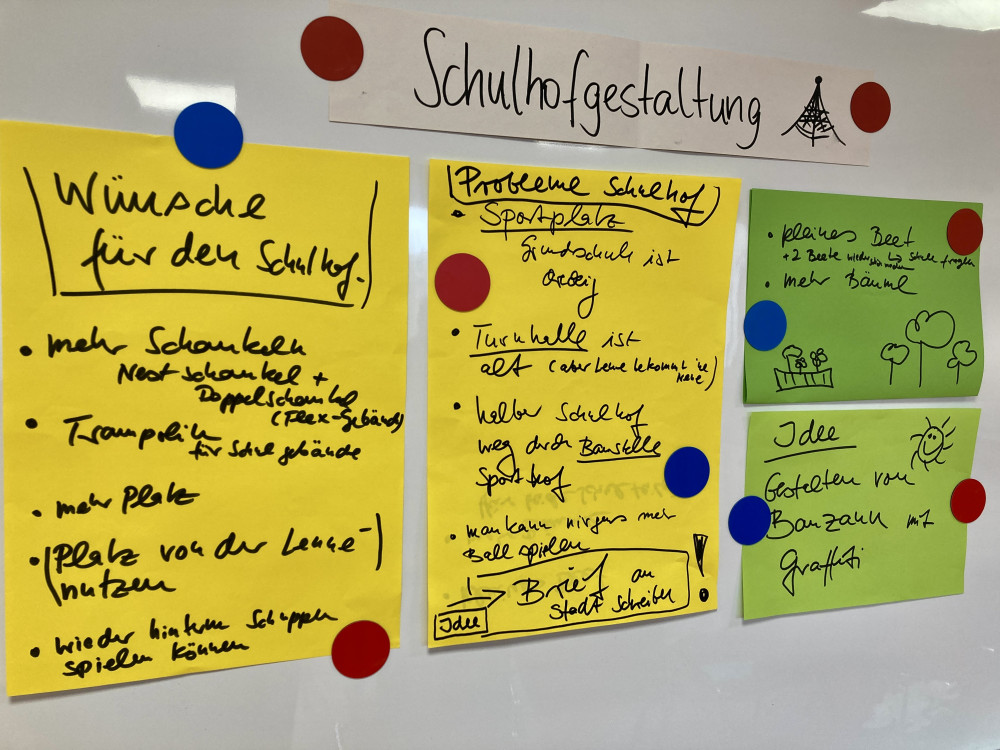 Schulhofgestaltung
Wünsche
für den Schulhof.
• mehr Schaukeln
Nestschaukel +
Doppelschaukel
(Flex-Gebäude)
• Trampolin
für Schulgebäude
• mehr Platz
• (Platz von der Lenne-)
nutzen
• wieder hinterm Schuppen
spielen können
Probleme Schulhof
• Sportplatz
Grundschule ist
dreckig
• Turnhalle ist
alt (aber Lenne bekommt ne
Neue)
• halber Schulhof
weg durch Baustelle
Sporthof
• man kann nirgens mehr
Ball spielen
Idee → Brief an
Stadt schreiben !
• kleines Beet
+ 2 Beete → Schule fragen
• mehr Bäume
Idee
Gestalten von
Bauzaun mit
Graffiti